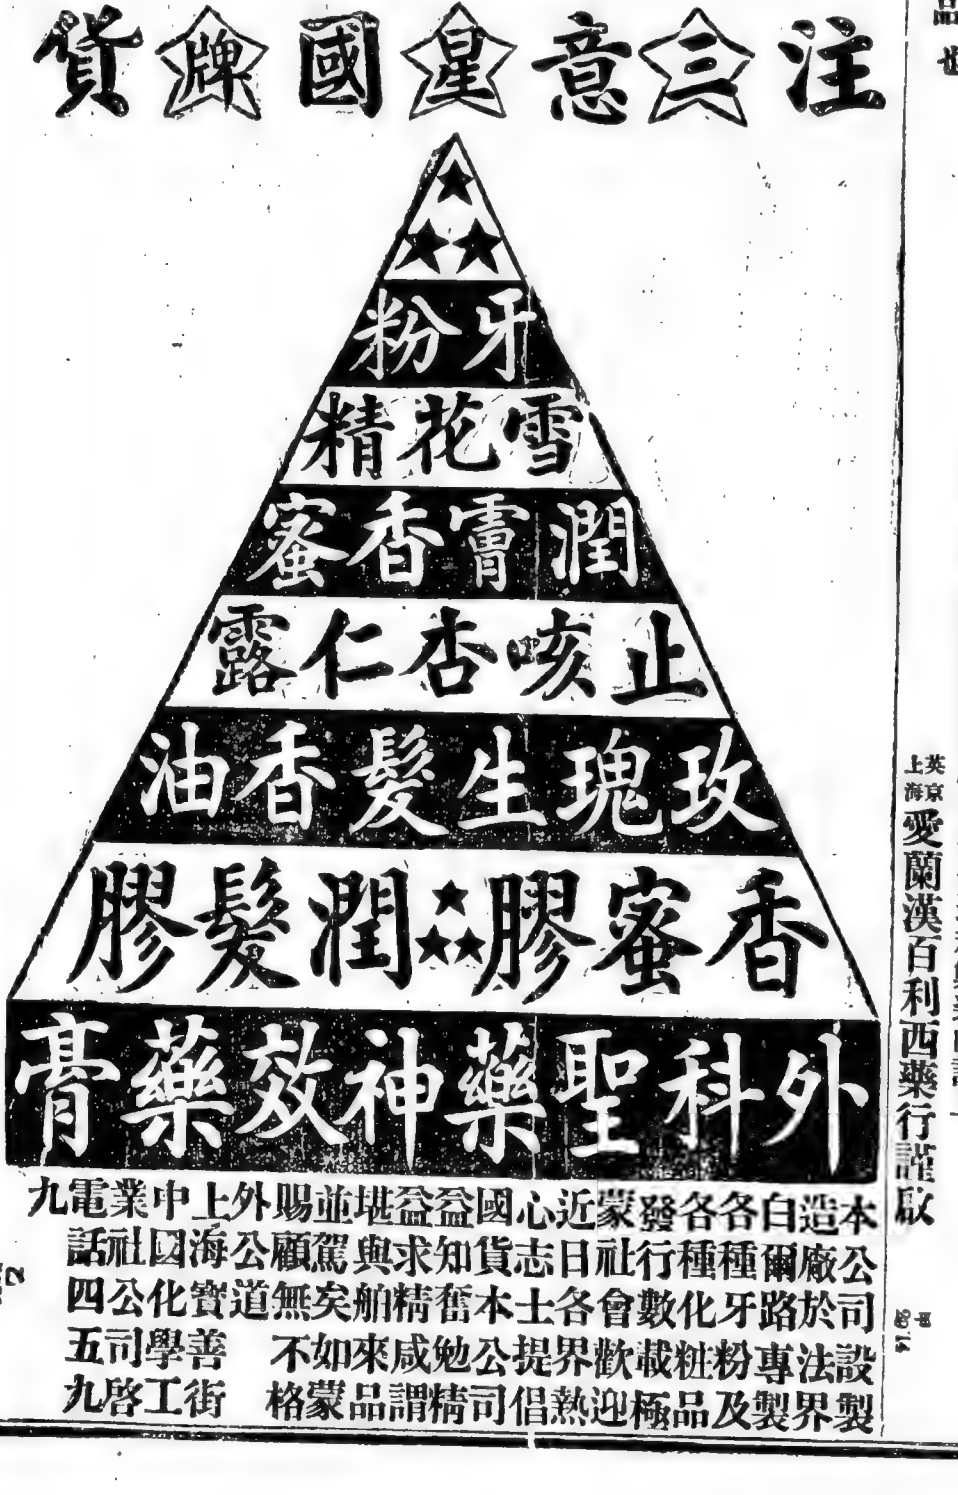 注意國貨
三星牌
牙粉
雪花精
潤膚香蜜
止咳杏仁露
玫瑰生髮香油
香蜜膠
潤髮膠
外科聖藥神效藥膏
本公司設製
造廠於法界
白爾路專製
各種牙粉及
各種化粧品
發行數載極
蒙社會歡迎
近日各界熱
心志士提倡
國貨本公司
益知奮勉精
益求精咸謂
堪與舶來品
並駕矣如蒙
賜顧無不格
外公道
上海寶善街
中國化學工
業社公司啓
電話四五九
九
英京上海愛蘭漢百利西藥行謹啟
品也